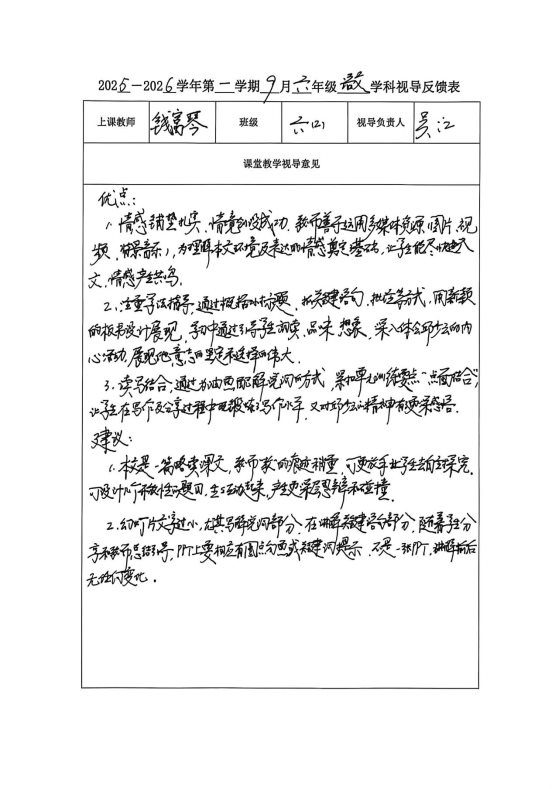 2025—2026学年第一学期9月六年级语文学科视导反馈表
上课教师 钱富琴 班级 六(2) 视导负责人 吴江
课堂教学视导意见
优点：
1. 情感铺垫扎实，情境创设成功。教师善于运用多媒体资源（图片、视
频、背景音乐），为理解本文环境及表达的情感奠定基础，让学生能尽快进入
文，情感产生共鸣。
2. 注重学法指导，通过概括小标题，抓关键语句，批注等方式，用新颖
的板书设计展现，学习中通过引导学生朗读、品味、想象，深入体会邱少云的内
心活动，展现他意志的坚定和选择的伟大。
3. 读写结合，通过为油画配解说词的方式，紧扣单元训练要点“点面结合”，
让学生在写作及分享过程中既锻炼写作水平，又对邱少云的精神有更深感悟。
建议：
1. 本文是一篇略读课文，教师“教”的痕迹稍重，可更放手让学生去自主探究。
可设计一个开放性问题，生生互动起来，产生更深层思辩和碰撞。
2. 幻灯片文字过小，尤其写解说词部分，在讲解关键语句部分，随着学生分
享和教师总结引导，PPT上要相应有圈点勾画或关键词提示，不是一张PPT，讲解前后
无任何变化。